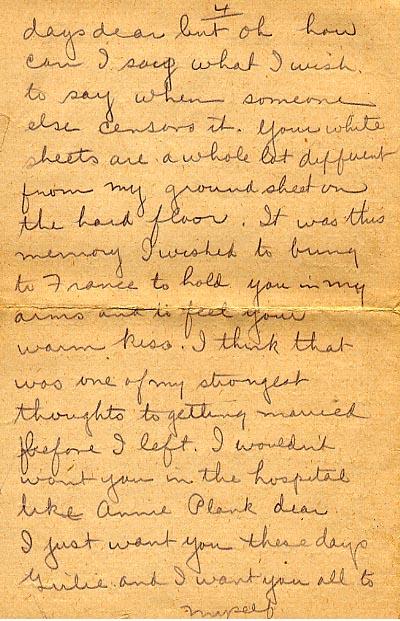 4
days dear but oh how
can I say what I wish
to say when someone
else censors it. Your white
sheets are a whole lot different
from my ground sheet on
the hard floor. It was this
memory I wished to bring
to France to hold you in my
arms and to feel your
warm kiss. I think that
was one of my strongest
thoughts to getting married
before I left. I wouldn't
want you in the hospital
like Annie Plank dear
I just want you these days
Julie and I want you all to
myself